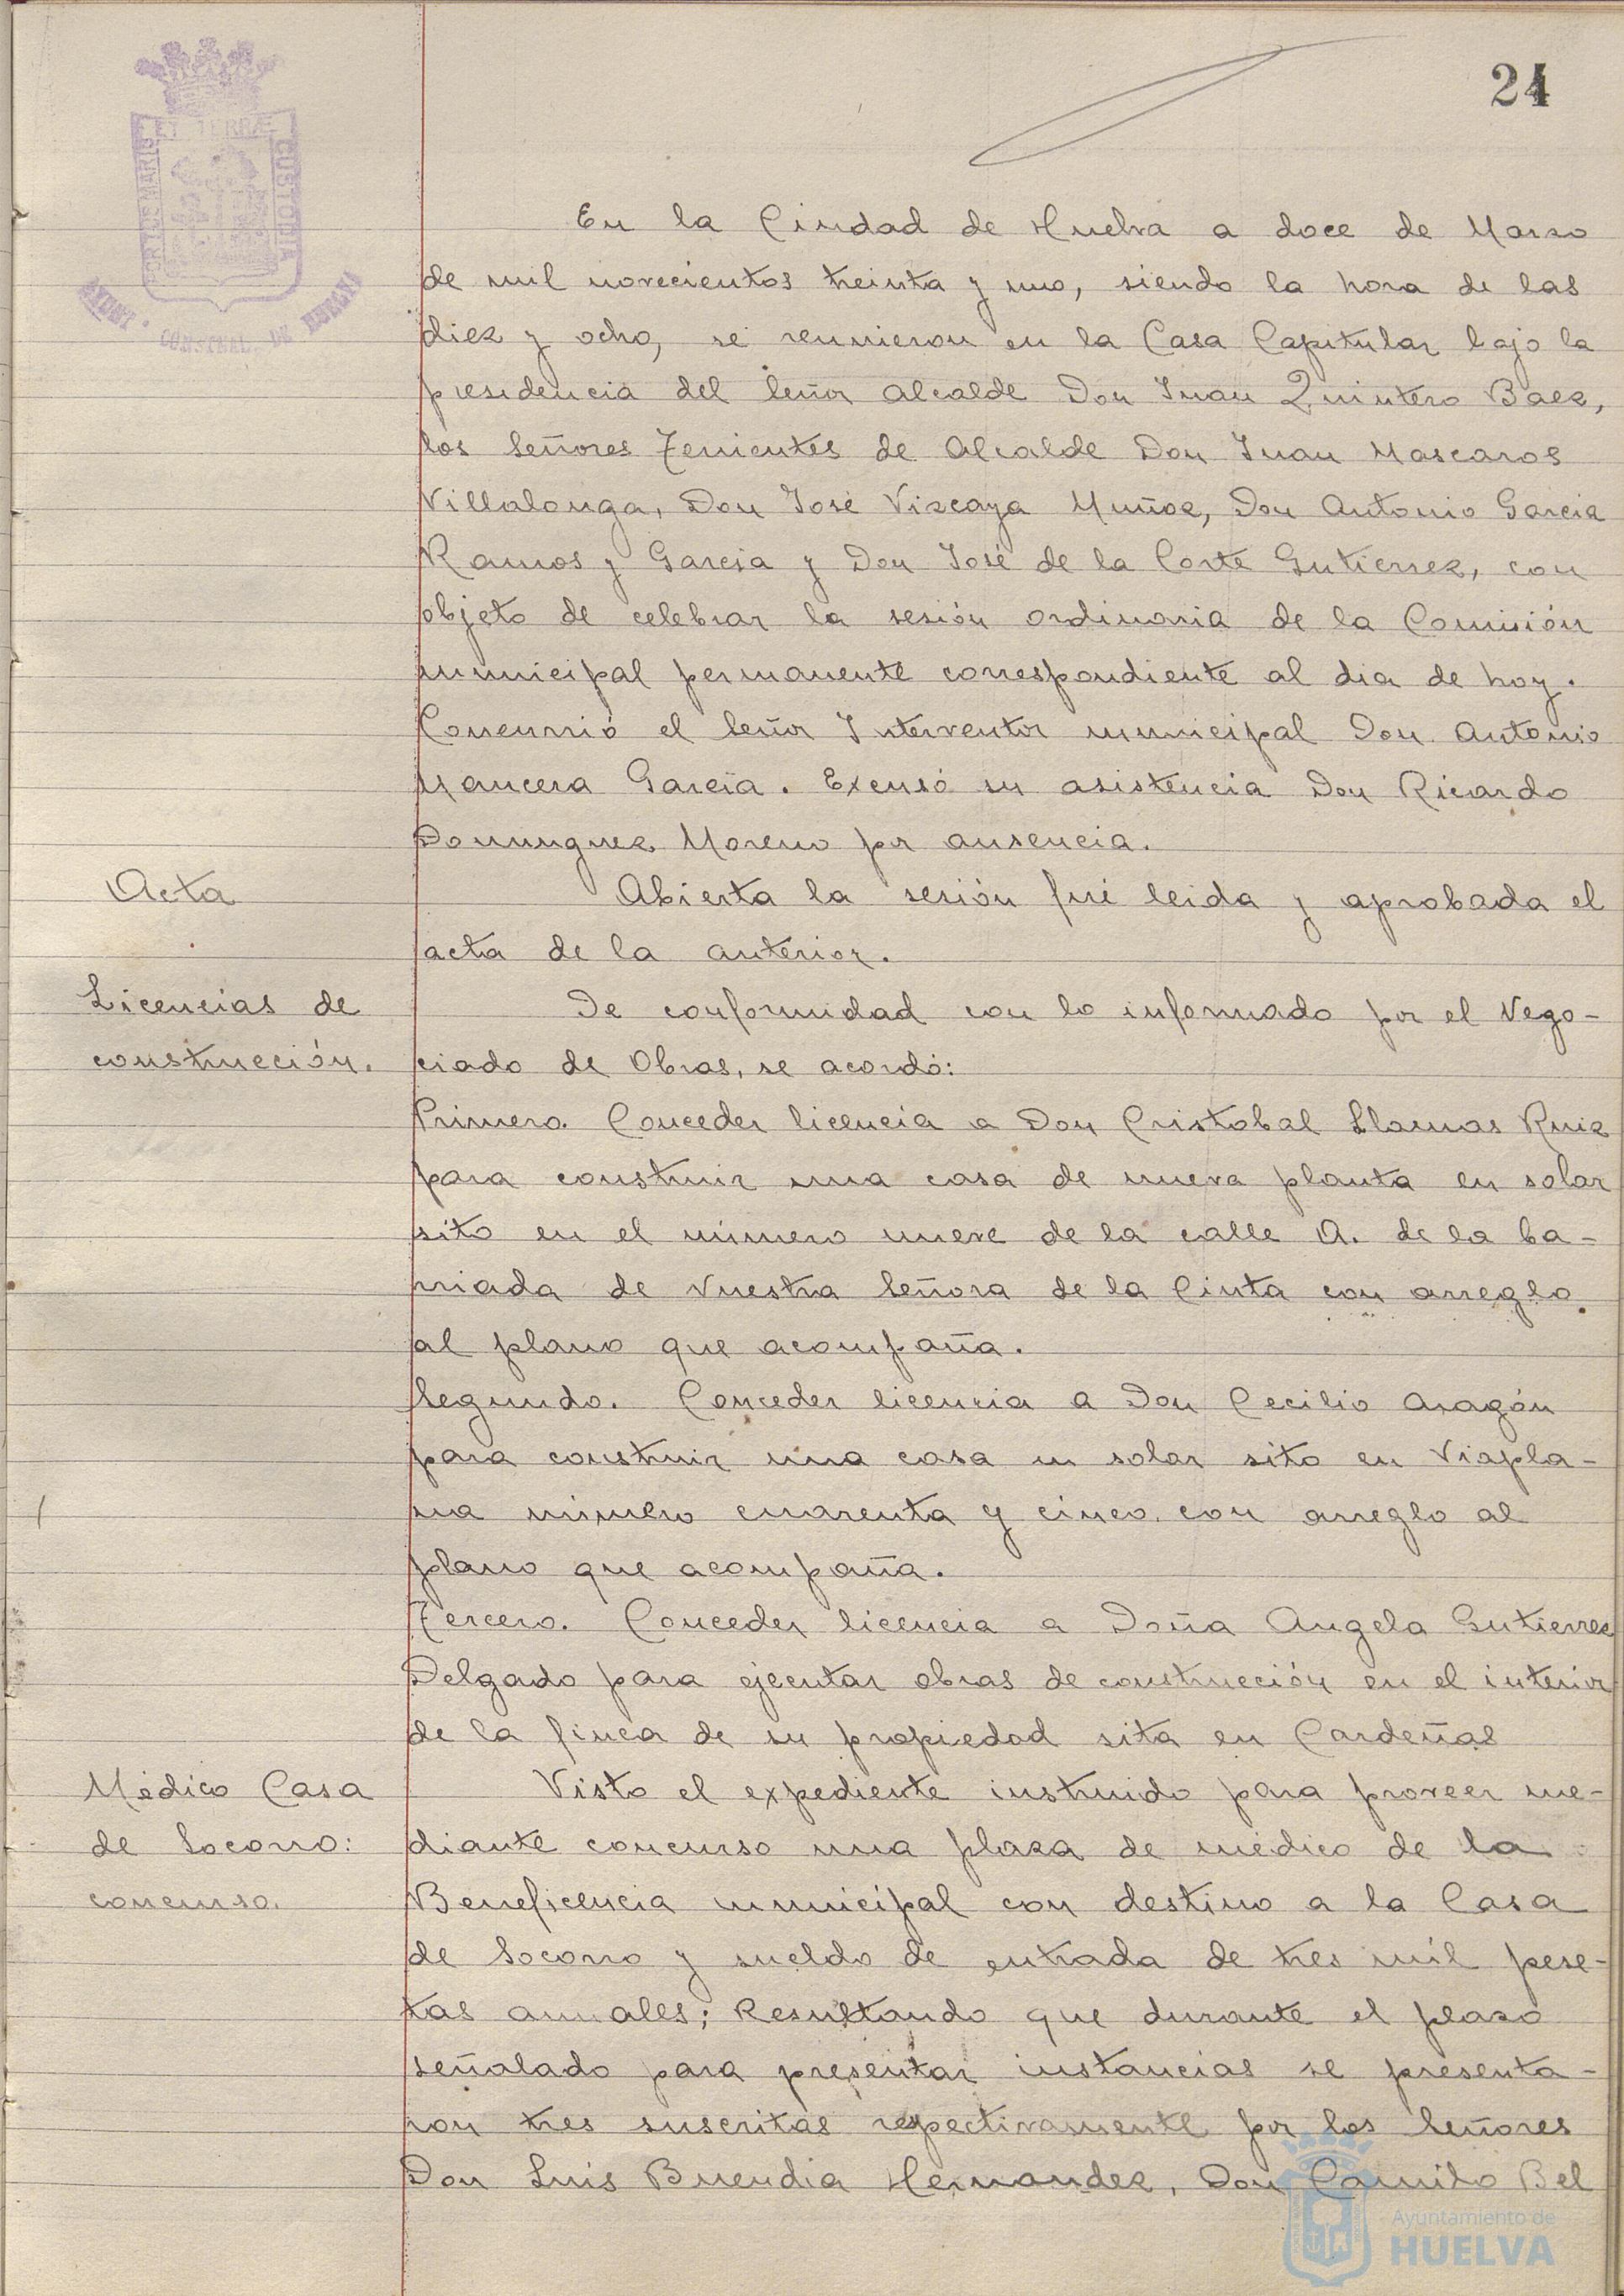 24
PORTUS MARIS ET TERRAE CUSTODIA
AYUNT. CONSTNAL. DE HUELVA
En la Ciudad de Huelva a doce de Marzo
de mil novecientos treinta y uno, siendo la hora de las
diez y ocho, se reunieron en la Casa Capitular bajo la
presidencia del Señor Alcalde Don Juan Quintero Baez,
los Señores Tenientes de Alcalde Don Juan Mascaros
Villalonga, Don José Vizcaya Muñoz, Don Antonio Garcia
Ramos y Garcia y Don José de la Corte Gutierrez, con
objeto de celebrar la sesión ordinaria de la Comisión
municipal permanente correspondiente al dia de hoy.
Concurrió el Señor Interventor municipal Don Antonio
Mancera García. Excusó su asistencia Don Ricardo
Dominguez Moreno por ausencia.
Acta
Abierta la sesión fué leida y aprobada el
acta de la anterior.
Licencias de
construcción.
De conformidad con lo informado por el Nego-
ciado de Obras, se acordó:
Primero. Conceder licencia a Don Cristobal Llamas Ruiz
para construir una casa de nueva planta en solar
sito en el número nueve de la calle A. de la ba-
rriada de Nuestra Señora de la Cinta con arreglo
al plano que acompaña.
Segundo. Conceder licencia a Don Cecilio Aragón
para construir una casa en solar sito en Viapla-
na número cuarenta y cinco con arreglo al
plano que acompaña.
Tercero. Conceder licencia a Doña Angela Gutierrez
Delgado para ejecutar obras de construcción en el interior
de la finca de su propiedad sita en Cardeñas
Médico Casa
de Socorro:
concurso.
Visto el expediente instruido para proveer me-
diante concurso una plaza de médico de la
Beneficencia municipal con destino a la Casa
de Socorro y sueldo de entrada de tres mil pese-
tas anuales; Resultando que durante el plazo
señalado para presentar instancias se presenta-
ron tres suscritas respectivamente por los Señores
Don Luis Buendia Hernandez, Don Camilo Bel
Ayuntamiento de
HUELVA